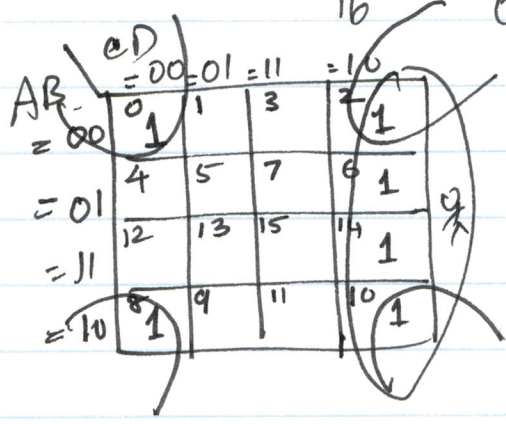 16
CD
=00 =01 =11 =10
AB
=00 0 1 1 3 2 1
=01 4 5 7 6 1
=11 12 13 15 14 1
=10 8 1 9 11 10 1